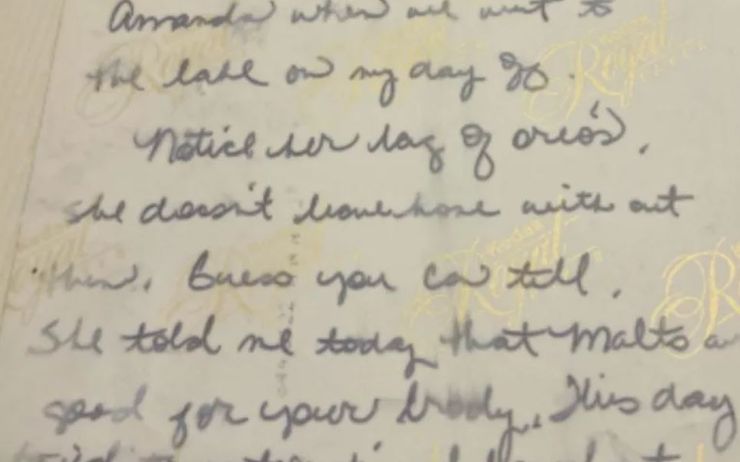 Amanda when we went to
the lake on my day off.
Notice her bag of oreo's.
She doesn't leave home with out
them. Guess you can tell.
She told me today that Malts a
good for your body. This day
Kodak
Royal